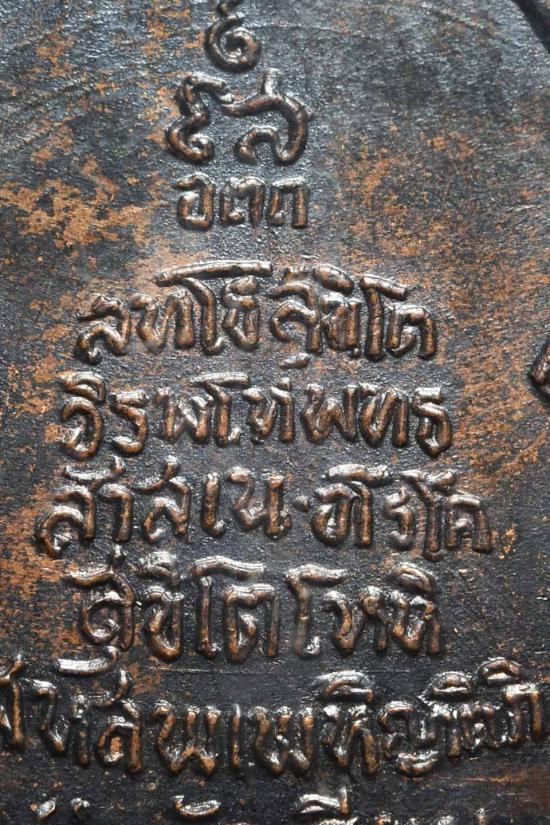 อตถ
ลทโธสุขิโต
วิรุฬโหพุทธ
สาสเน·อโรโค
สุขิโตโหหิ
สหสพเพหิญาติภิ